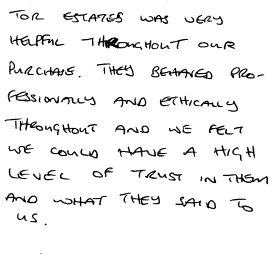 TOR ESTATES WAS VERY
HELPFUL THROUGHOUT OUR
PURCHASE. THEY BEHAVED PRO-
FESSIONALLY AND ETHICALLY
THROUGHOUT AND WE FELT
WE COULD HAVE A HIGH
LEVEL OF TRUST IN THEM
AND WHAT THEY SAID TO
US.